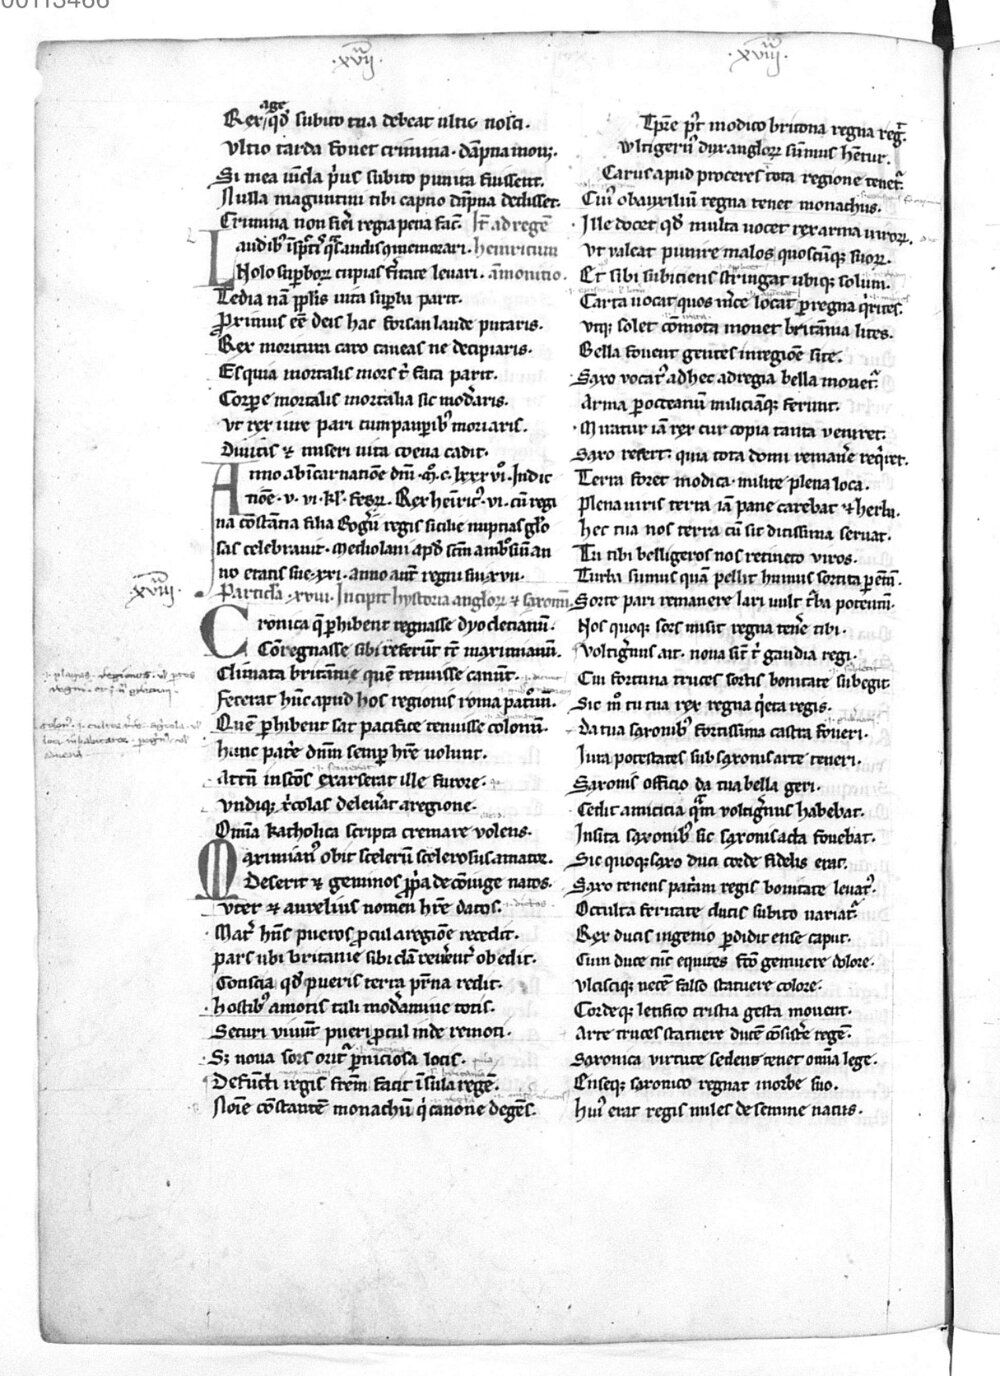 00113466
.xvii.
.xviii.
age
Rex, qd subito tua debeat ultio nosci.
Vltio tarda fouet crimina. dāpna mouȝ.
Si mea uīcla p̄us subito punita fuissent.
Nulla maguntini tibi captio dāpna dedisset.
Crimina non fieri regia pena fac̄. Itē ad regē
heinricum
Nolo supbor cupias leuari. āmonitio.
Tedia nā pp̄lis uita supba parit.
Proximus eē deis hac forsan laude putaris.
Rex moritura caro caueas ne decipiaris.
Es quia mortalis mors t̄ fata parit.
Corpe mortalis mortalia sic modaris.
Vt rex iure pari cum paupibꝰ moriaris.
Diuitis & miseri uita coeua cadit.
Anno ab īcarnatiōe dm̄. M. c. lxxxvi. Indic
tiōe. v. vi. kl. febr. Rex heinricꝰ. vi. cū regi
na cōstātia filia Rogerii regis sicilie nuptias glo
sas celebrauit. Mediolani apd scm̄ ambꝰsiū an
no etatis sue. xxi. anno aut̄ regni sui. xvii.
.xviii.
Particla. xviii. Incipit hystoria anglor̄ & saxonū.
Cronica q̄ phibent regnasse dyocletianū.
Corregnasse sibi referūt tn̄ maximianū.
Climata britānie quē tenuisse canūt.
Fecerat hūc apud hos regionis roma patrnū.
Quē phibent sat pacifice tenuisse colonū.
hunc patre dnm̄ semp hr̄e uolunt.
Attn̄ in scōs exarserat ille furore.
Vndiqꝫ xp̄icolas deleuerat a regione.
Omīa katholica scripta cremare volens.
Maximianꝰ obit scelerū scelerosus amator.
Deserit & geminos ppa de cōiuge natos.
Vter & aurelius nomen hr̄e datos.
Matr̄ hūs pueros pcul a regiōe recedit.
pars ubi britanie sibi clā reuerent̄ obedit.
Conscia qd pueris terra pt̄na redit.
hostibꝰ amotis tali modamine totis.
Securi uiuūt pueri pcul inde remoti.
Sȝ noua sors orit̄ pniciosa locis.
Defūcti regis frēm facit īsula regē.
Noīe cōstantē monachū q̄ canone degēs.
Tpr̄e pt̄ modico britona regna reḡ.
Vltigerni dux anglor̄ sūmus hētur.
Carus apud proceres tota regione tenet̄.
Cuiꝰ ob auxiliū regna tenet monachus.
Ille docet qd multa uocet rex arma uiror̄.
Vt ualeat punire malos quoscūqꝫ suor̄.
Et sibi subiciens stringat ubiqꝫ solum.
Carta uocat quos m̄ce locat p regna q̄rites.
Vtqꝫ solet cōmota mouet britānia lites.
Bella fouent gentes in regiōe site.
Saxo vocatꝰ adhec ad regia bella mouet̄.
Arma p occeanū miliciāqꝫ ferunt.
Miratur iā rex cur copia tanta ueniret.
Saxo refert. quia tota domi remane req̄ret.
Terra foret modica. milite plena loca.
Plena uiris terra iā pane carebat & herba.
hec tua nos terra cū sit ditissima seruat.
Tu tibi belligeros nos retineto viros.
Turba sumus quā pellit humus sortita p
Sorte pari remanere lari uult tba potentū.
Nos quoqꝫ sors misit regna tene tibi.
Voltigernus ait. noua sūt t̄ gaudia regi.
Cui fortuna truces sortis bonitate subegit.
Sic m tu tua rex regna q̄eta regis.
da tua saxonibꝰ fortissima castra foueri.
Iura potestates sub saxonis arte teneri.
Saxonis officio da tua bella geri.
Cedit amicicia qm̄ voltigernus habebat.
Insita saxonibꝰ sic saxonis acta fouebat.
Sic quoqꝫ saxo duci corde fidelis erat.
Saxo tenens patriam regis bonitate leuatꝰ.
Occulta feritate ducis subito uariat̄.
Rex ducis ingenio pdidit ense caput.
Cum duce tūc equites gemuere dolore.
Vlcisciqꝫ necē falso statuere colore.
Cordeqꝫ letifico tristia gesta mouent.
Arte truces statuere ducē cōsistere regē.
Saxonica virtute sedens tenet omīa lege.
Enseqꝫ saxonico regnat morbe suo.
huiꝰ erat regis miles de semine natus.